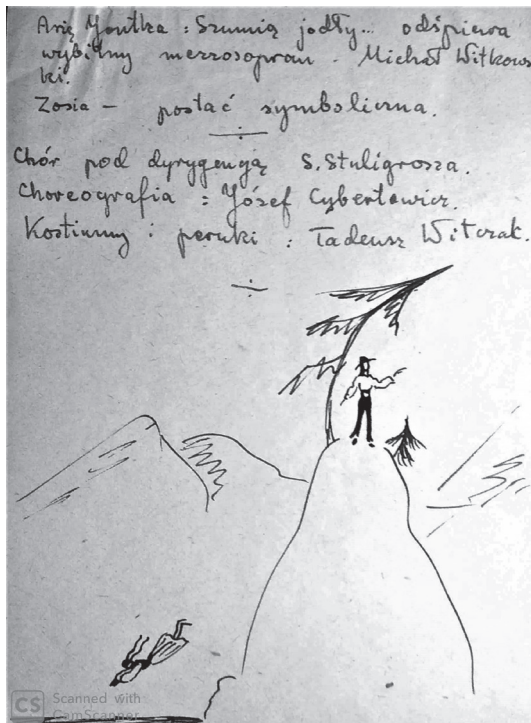 Arię Jontka : Szumią jodły... odśpiewa
wybitny mezzosopran - Michał Witkows
ki.
Zosia - postać symboliczna.
Chór pod dyrygengją S. Stuligrosza.
Choreografia : Józef Cybertowicz.
Kostiumy i peruki : Tadeusz Witczak.
CS Scanned with
CamScanner